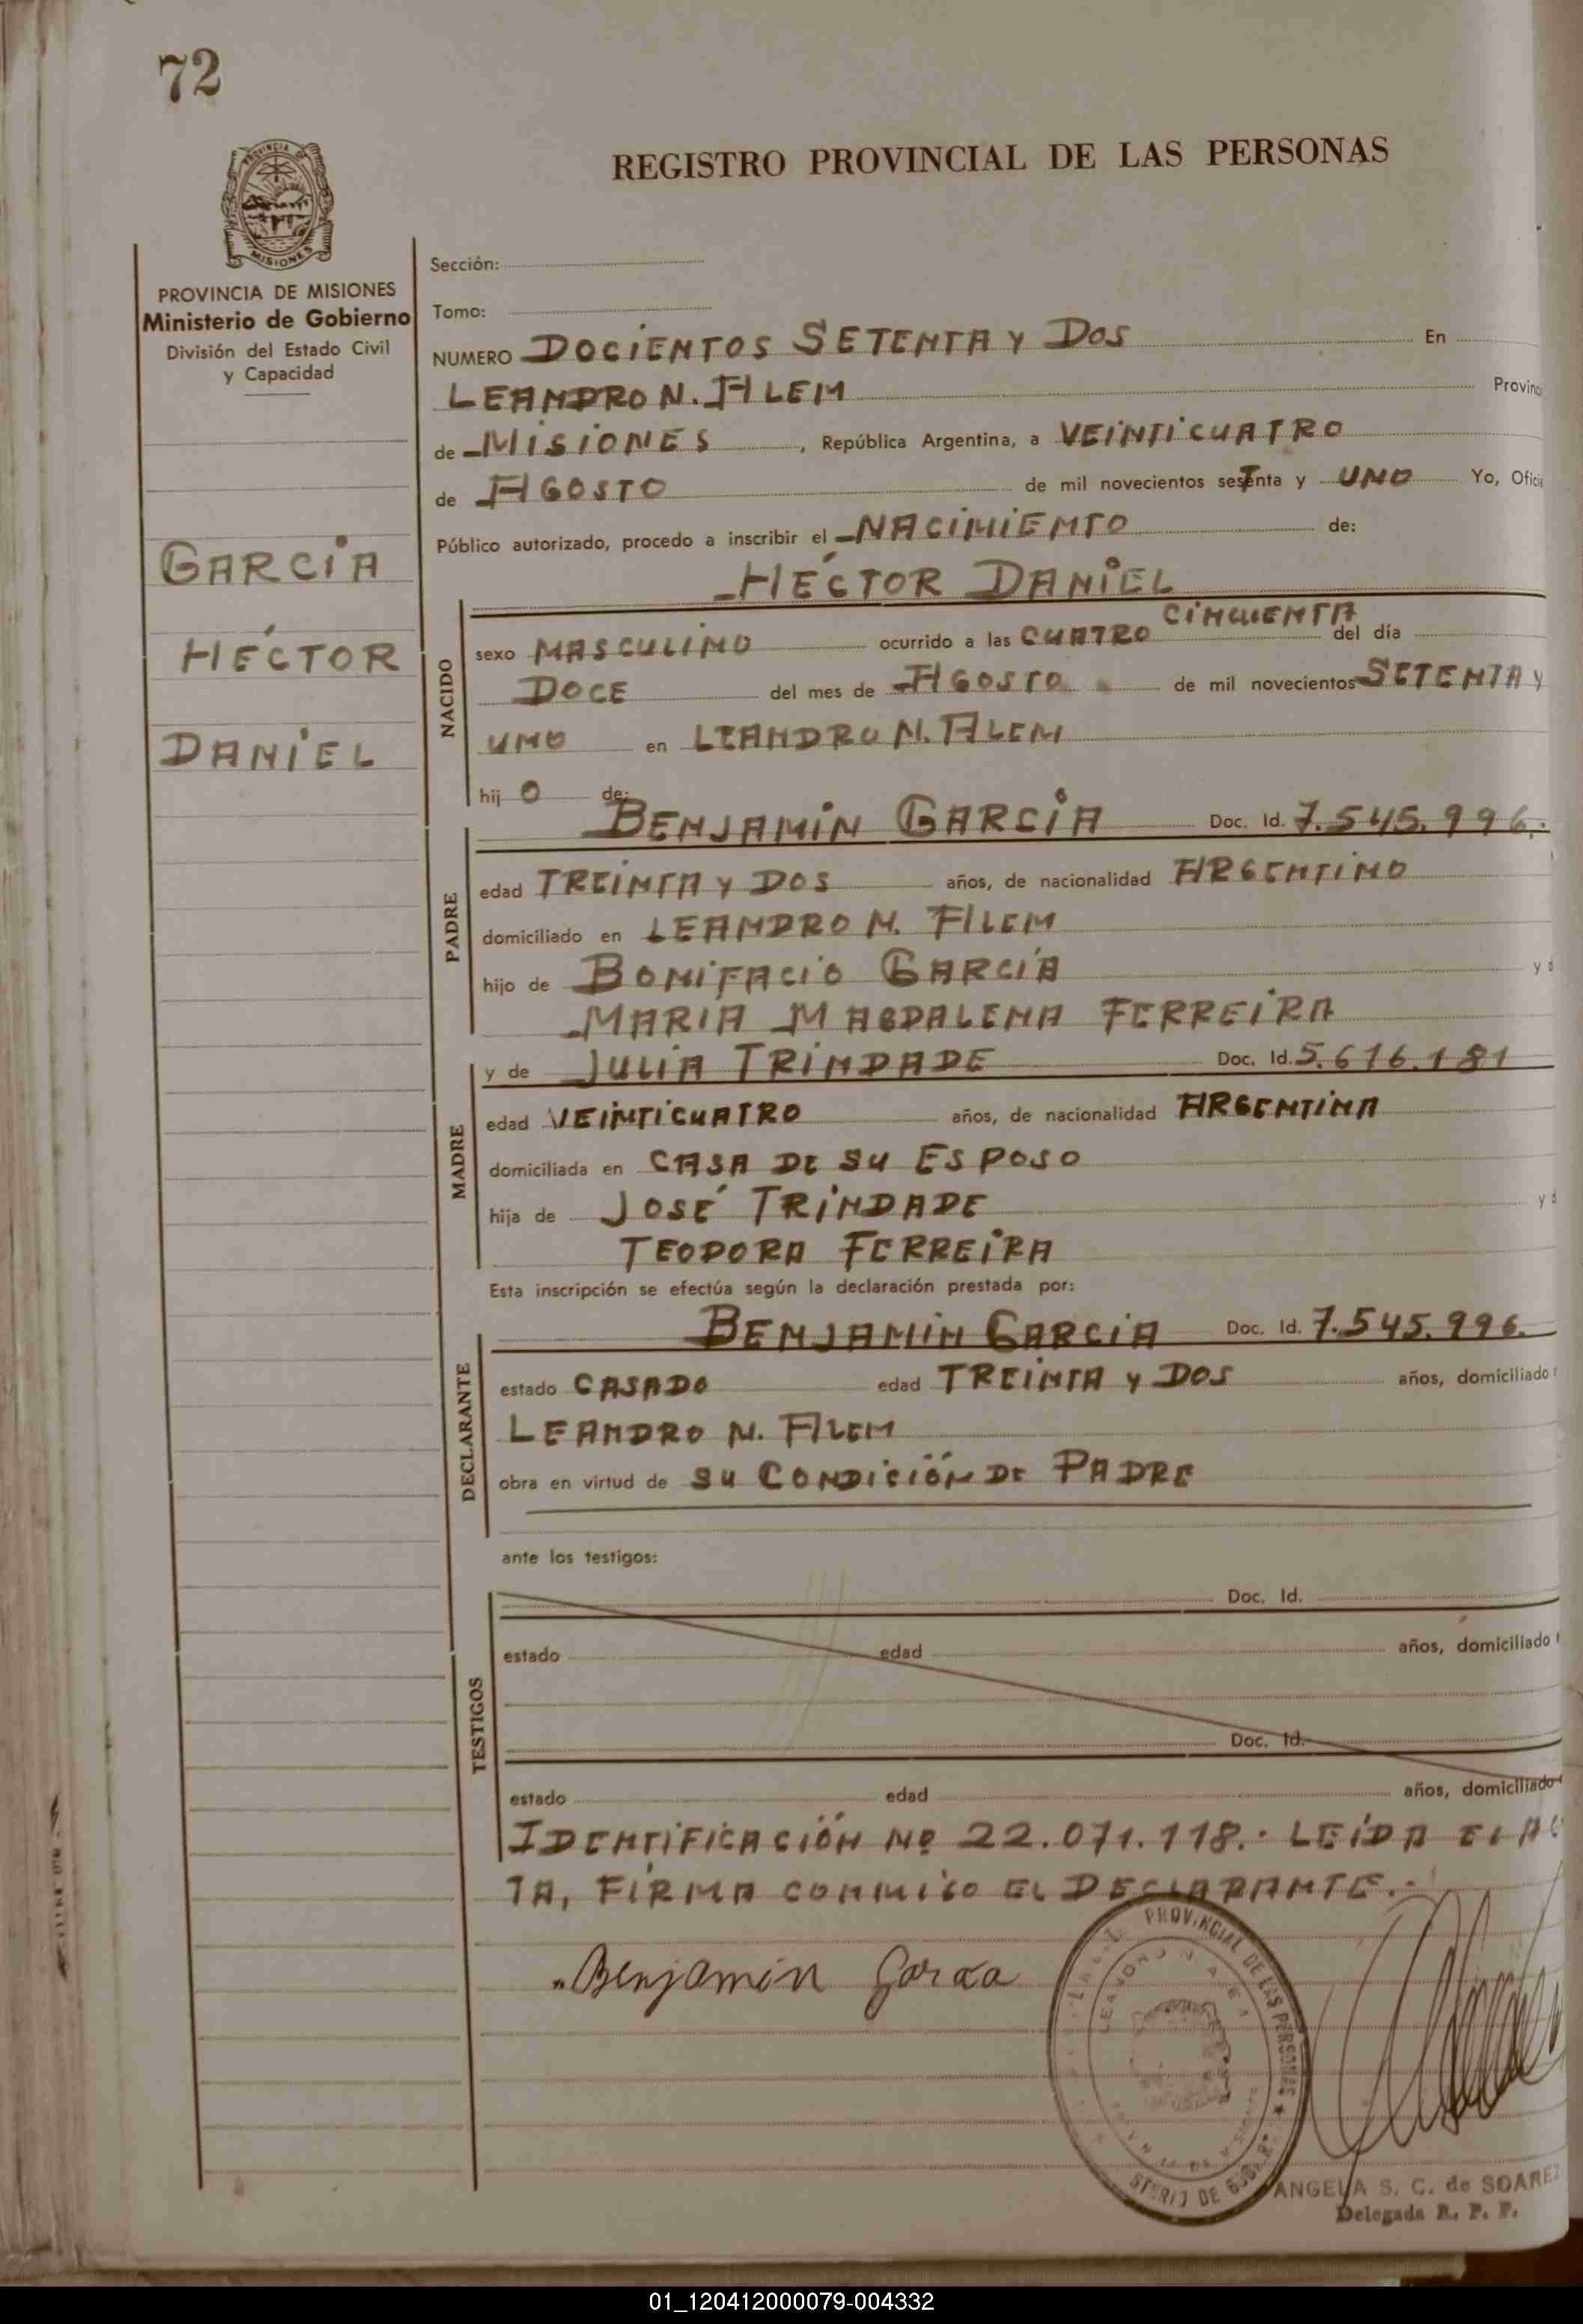 72
REGISTRO PROVINCIAL DE LAS PERSONAS
PROVINCIA DE MISIONES
Ministerio de Gobierno
División del Estado Civil
y Capacidad
GARCÍA
HÉCTOR
DANIEL
Sección:
Tomo:
NUMERO DOCIENTOS SETENTA Y DOS En
LEANDRO N. ALEM Provinc
de MISIONES, República Argentina, a VEINTICUATRO
de AGOSTO de mil novecientos setenta y UNO Yo, Oficia
Público autorizado, procedo a inscribir el NACIMIENTO de:
HÉCTOR DANIEL
NACIDO
sexo MASCULINO ocurrido a las CUATRO CINCUENTA del día
DOCE del mes de AGOSTO de mil novecientos SETENTA Y
UNO en LEANDRO N. ALEM
hij O de:
BENJAMÍN GARCÍA Doc. Id. 7.545.996.-
PADRE
edad TREINTA Y DOS años, de nacionalidad ARGENTINO
domiciliado en LEANDRO N. ALEM
hijo de BONIFACIO GARCÍA y d
MARIA MAGDALENA FERREIRA
MADRE
y de JULIA TRINDADE Doc. Id. 5.616.181
edad VEINTICUATRO años, de nacionalidad ARGENTINA
domiciliada en CASA DE SU ESPOSO
hija de JOSÉ TRINDADE y d
TEODORA FERREIRA
Esta inscripción se efectúa según la declaración prestada por:
DECLARANTE
BENJAMIN GARCIA Doc. Id. 7.545.996.
estado CASADO edad TREINTA Y DOS años, domiciliado
LEANDRO N. ALEM
obra en virtud de SU CONDICIÓN DE PADRE
ante los testigos:
TESTIGOS
Doc. Id.
estado edad años, domiciliado
Doc. Id.
estado edad años, domiciliado
IDENTIFICACIÓN Nº 22.071.118.- LEÍDA EL AC
TA, FIRMA CONMIGO EL DECLARANTE.-
Benjamín García
PROVINCIAL DE LAS PERSONAS
LEANDRO N. ALEM
ANGELA S. C. de SOAREZ
Delegada R. P. P.
01_120412000079-004332